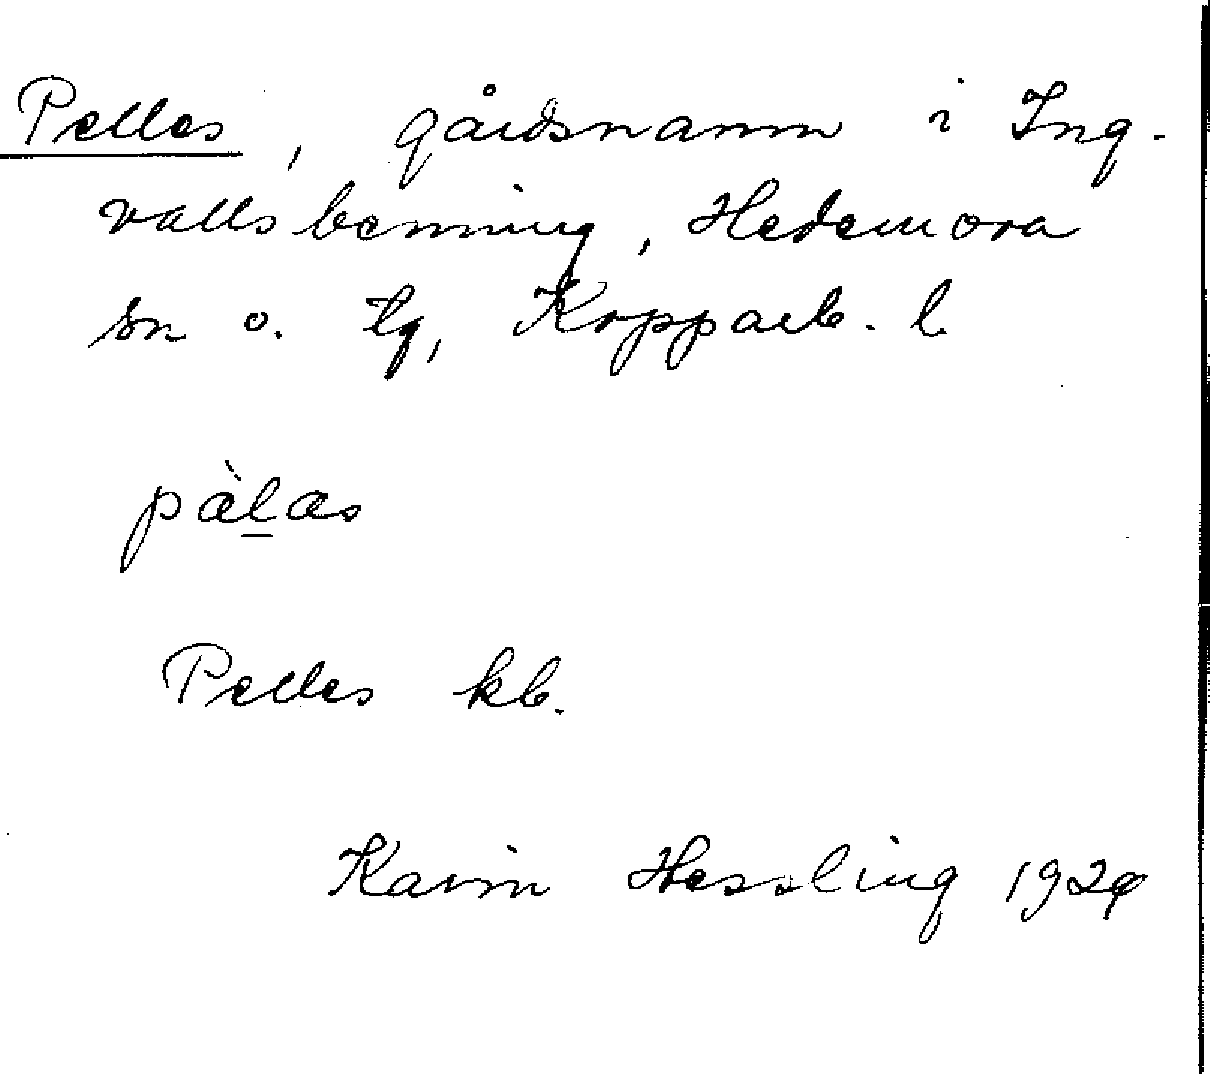 Pelles, gårdsnamn i Ing-
vallsbenning, Hedemora
sn o. tg, Kopparb. l.
pæ̀l̲as
Pelles kb.
Karin Hessling